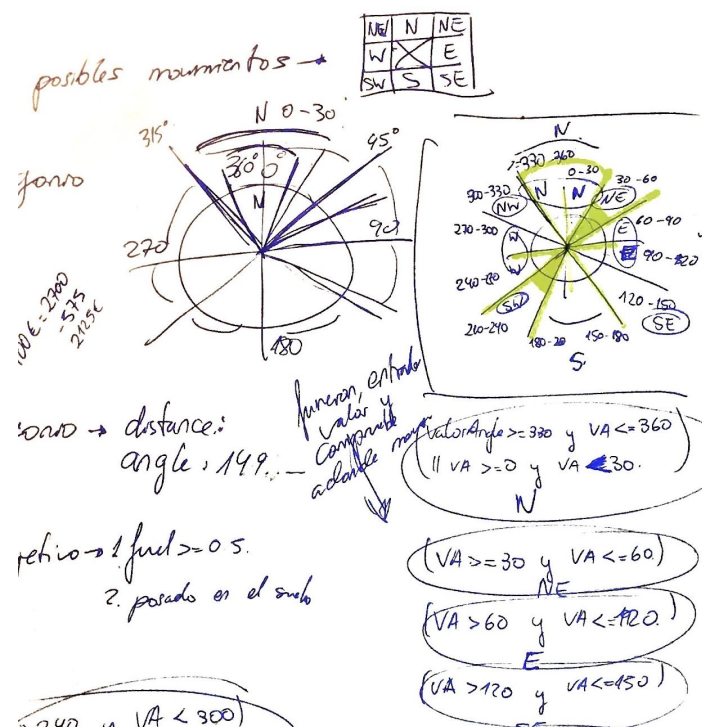 posibles movimientos →
NW N NE
W E
SW S SE
N 0-30
315°
45°
360° 0°
N
90
270
180
N
330 360
0-30
30-60
300-330
N N
NE
NW
60-90
270-300
W
E
E
90-120
240-270
W
SW
120-150
SE
210-240
180-210
150-180
S.
00€ = 2700
-575
2125€
funcion, entrada
valor y
compruebe
a donde mover
→ distance:
angle: 149...
valorAngle >= 330 y VA <= 360
|| VA >= 0 y VA < 30.
N
→ 1 fuel >= 0.5.
2. posado en el suelo
(VA >= 30 y VA <= 60)
NE
(VA > 60 y VA <= 120.)
E
(VA > 120 y VA <= 150)
SE
240 y VA < 300)